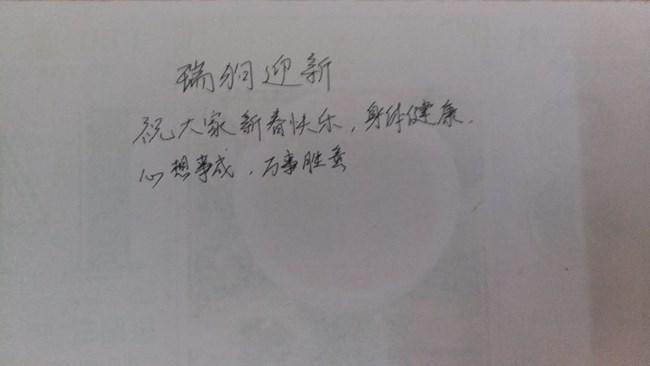 瑞狗迎新
祝大家新春快乐,身体健康.
心想事成,万事胜意